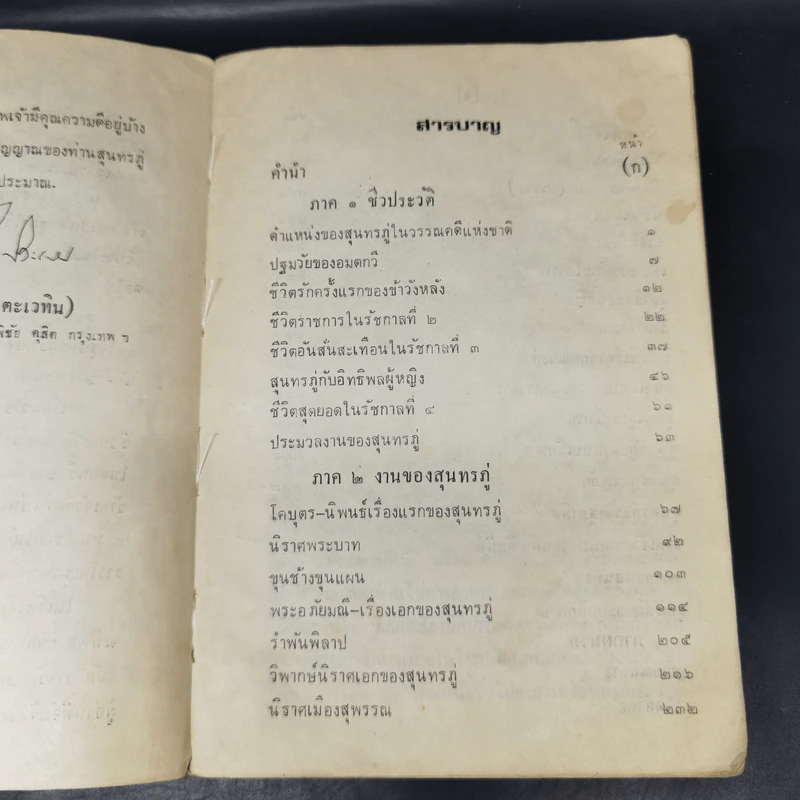 พเจ้ามีคุณความดีอยู่บ้าง
ญญาณของท่านสุนทรภู่
ประมาณ.
ตะเวทิน)
พิชัย ดุสิต กรุงเทพ ฯ
สารบาญ
หน้า
คำนำ (ก)
ภาค ๑ ชีวประวัติ
ตำแหน่งของสุนทรภู่ในวรรณคดีแห่งชาติ ๑
ปฐมวัยของอมตกวี ๗
ชีวิตรักครั้งแรกของข้าวังหลัง ๑๒
ชีวิตราชการในรัชกาลที่ ๒ ๒๒
ชีวิตอันสั่นสะเทือนในรัชกาลที่ ๓ ๓๗
สุนทรภู่กับอิทธิพลผู้หญิง ๔๖
ชีวิตสุดยอดในรัชกาลที่ ๔ ๖๑
ประมวลงานของสุนทรภู่ ๖๓
ภาค ๒ งานของสุนทรภู่
โคบุตร–นิพนธ์เรื่องแรกของสุนทรภู่ ๖๗
นิราศพระบาท ๙๒
ขุนช้างขุนแผน ๑๐๓
พระอภัยมณี–เรื่องเอกของสุนทรภู่ ๑๑๔
รำพันพิลาป ๒๐๕
วิพากษ์นิราศเอกของสุนทรภู่ ๒๑๖
นิราศเมืองสุพรรณ ๒๓๒